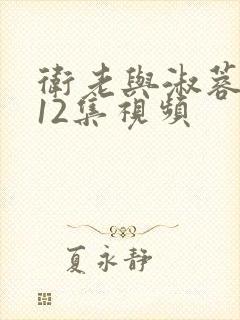 衛老與淑蓉
12集視頻
夏永靜